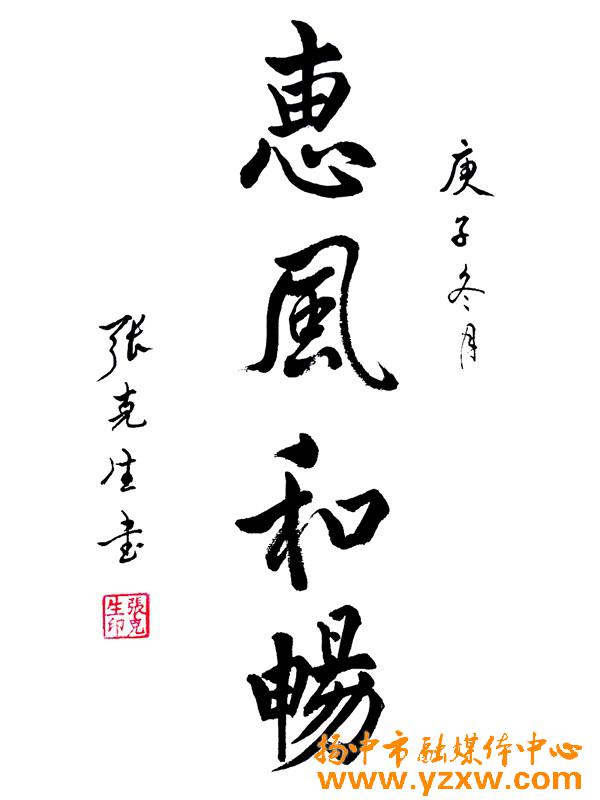 庚子冬月
惠風和暢
張克生书
張克生印
扬中市融媒体中心
www.yzxw.com